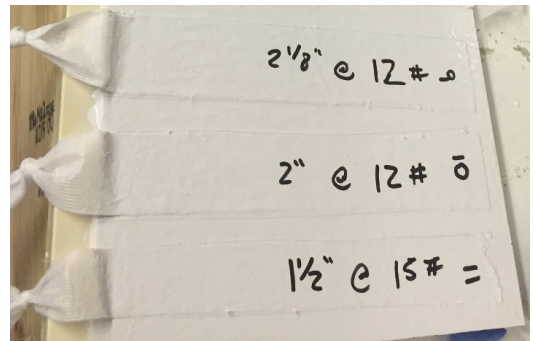 2 1/8" @ 12 # o
2" @ 12 # ō
1 1/2" @ 15# =